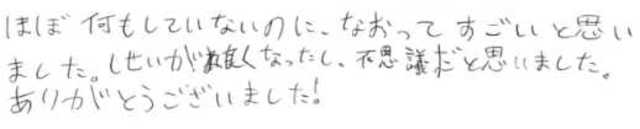 ほぼ 何もしていないのに、なおって すごいと思い
ました。しせいが難くなったし、不思議だと思いました。
ありがとうございました!